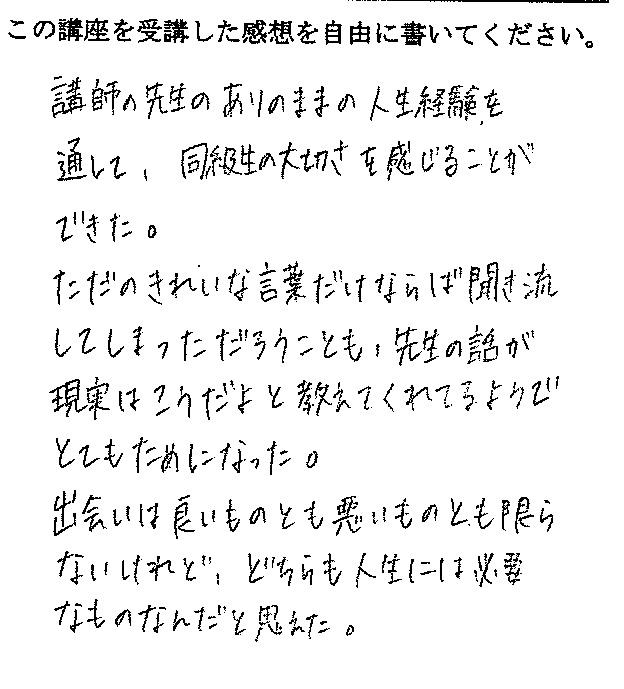 この講座を受講した感想を自由に書いてください。
講師の先生のありのままの人生経験を
通して、同級生の大切さを感じることが
できた。
ただのきれいな言葉だけならば聞き流
してしまっただろうことも、先生の話が
現実はこうだよと教えてくれてるようで
とてもためになった。
出会いは良いものとも悪いものとも限ら
ないけれど、どちらも人生には必要
なものなんだと思えた。